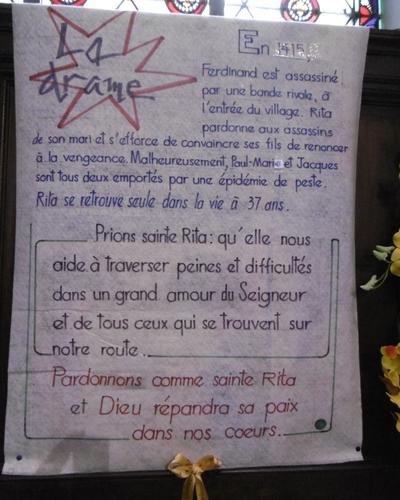 La drame
En 1415,
Ferdinand est assassiné
par une bande rivale, à
l'entrée du village. Rita
pardonne aux assassins
de son mari et s'efforce de convaincre ses fils de renoncer
à la vengeance. Malheureusement, Paul-Marie et Jacques
sont tous deux emportés par une épidémie de peste.
Rita se retrouve seule dans la vie à 37 ans.
Prions sainte Rita: qu'elle nous
aide à traverser peines et difficultés
dans un grand amour du Seigneur
et de tous ceux qui se trouvent sur
notre route..
Pardonnons comme sainte Rita
et Dieu répandra sa paix
dans nos coeurs..